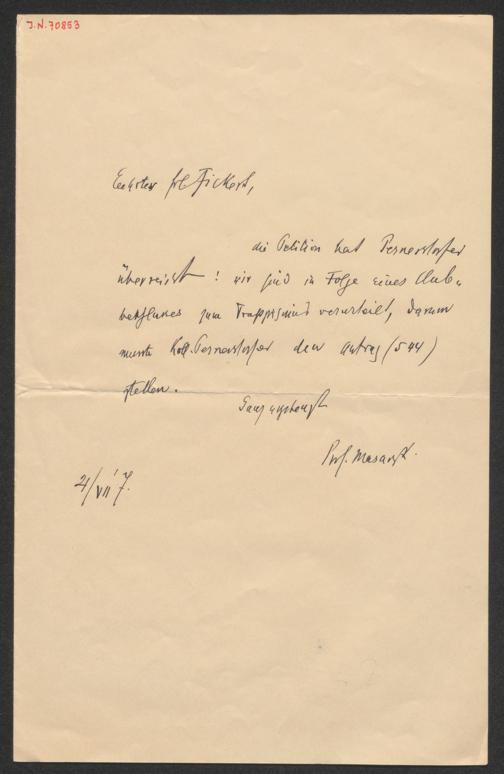 J.N. 70853
Geehrtes Frl Fickert,
die Petition hat Pernerstorfer
überreicht! wir sind in Folge eines Club-
beschlusses zum Trappismus verurteilt, darum
musste Koll. Pernerstorfer den Antrag (544)
stellen.
Ganz ergebenst
Prof. Masaryk.
21/VII 7.